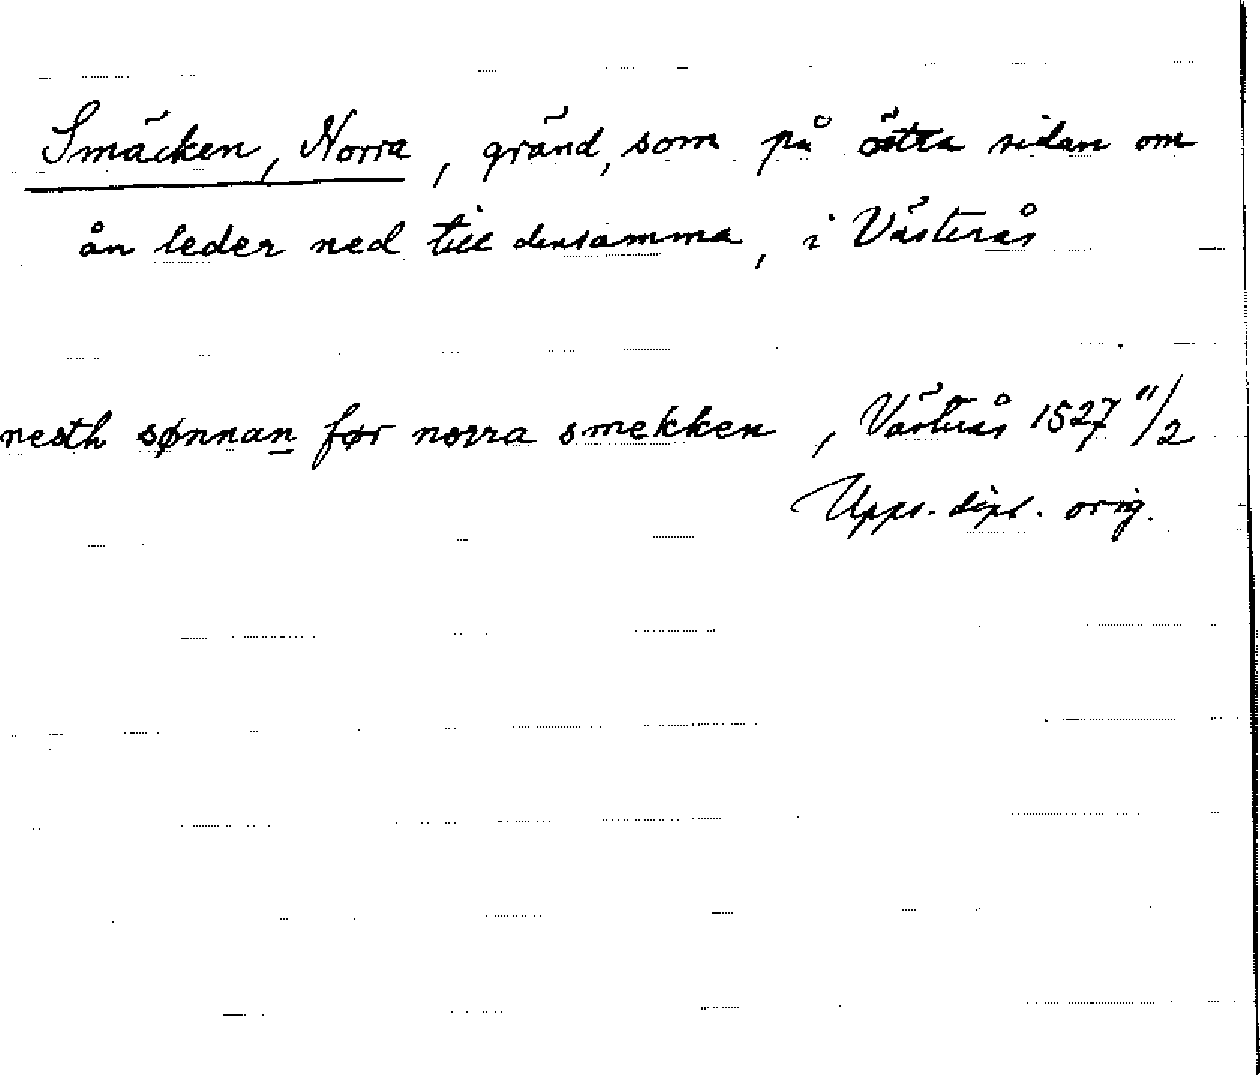 Smäcken, Norra, gränd, som på östra sidan om
ån leder ned till densamma, i Västerås
nesth sønnan før norra smekken, Västerås 1527 11/2
Upps. dipl. orig.